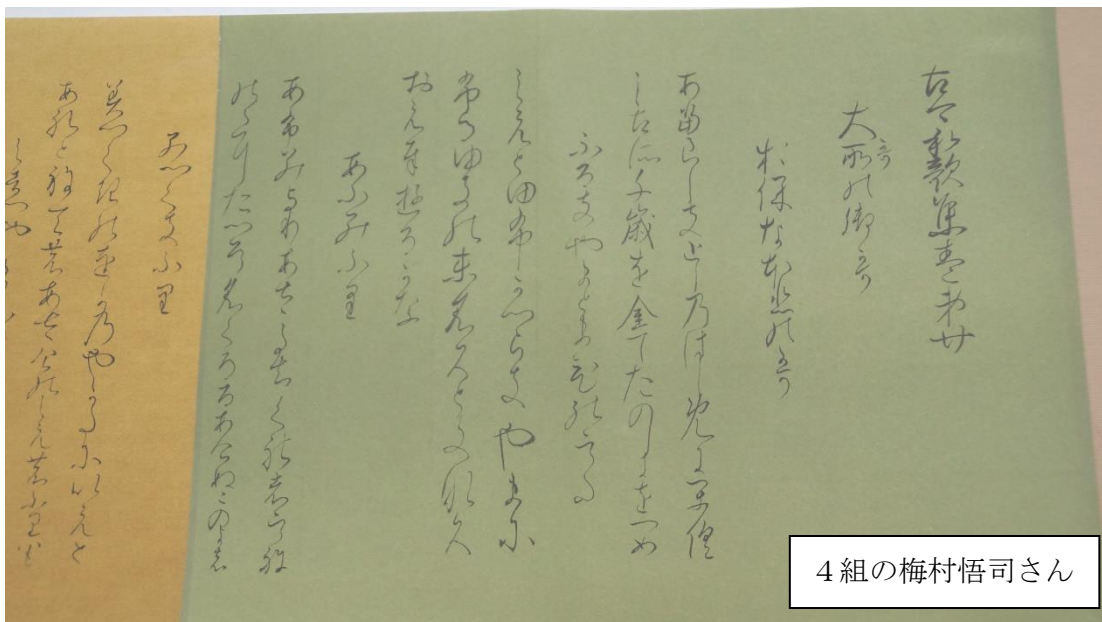 古今和歌集巻第廿
大哥所の御哥
おほなほひの哥
あたらしきとしのはしめにかく
しこそ千歳を金てたのしきをつめ
ふるきやまとまひのうた
しもとゆふかつらきやまに
ふるゆきの末なくときなく
おもほゆるかな
あふみふり
あふみよりあさたちくれはうね
ののにたつそなくなるあけぬこのよは
みつくきふり
みつくきのをかのやかたにいもと
あれとねてのあさけのしものふりは
しはつや
4組の梅村悟司さん